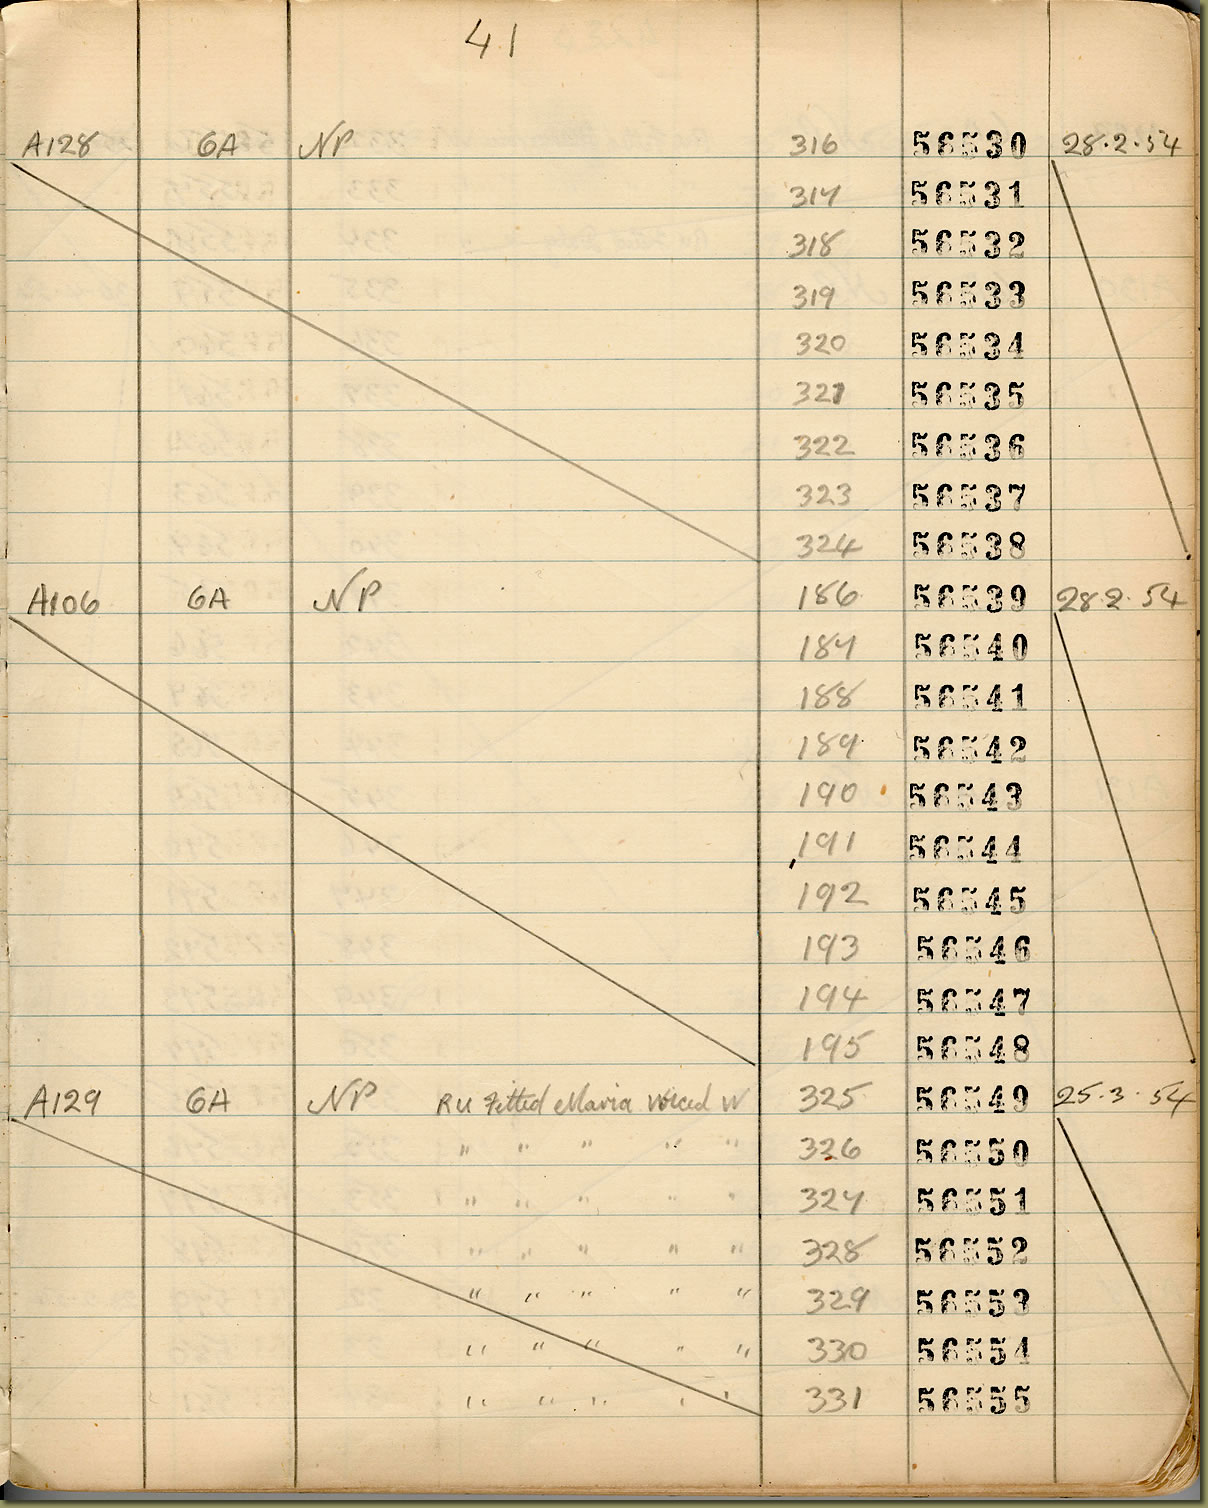 41
A128 6A NP 316 56530 28.2.54
317 56531
318 56532
319 56533
320 56534
321 56535
322 56536
323 56537
324 56538
A106 6A NP 186 56539 28.2.54
187 56540
188 56541
189 56542
190 56543
191 56544
192 56545
193 56546
194 56547
195 56548
A129 6A NP RU Fitted Maria Voiced W 325 56549 25.3.54
" " " " " 326 56550
" " " " " 327 56551
" " " " " 328 56552
" " " " " 329 56553
" " " " " 330 56554
" " " " " 331 56555